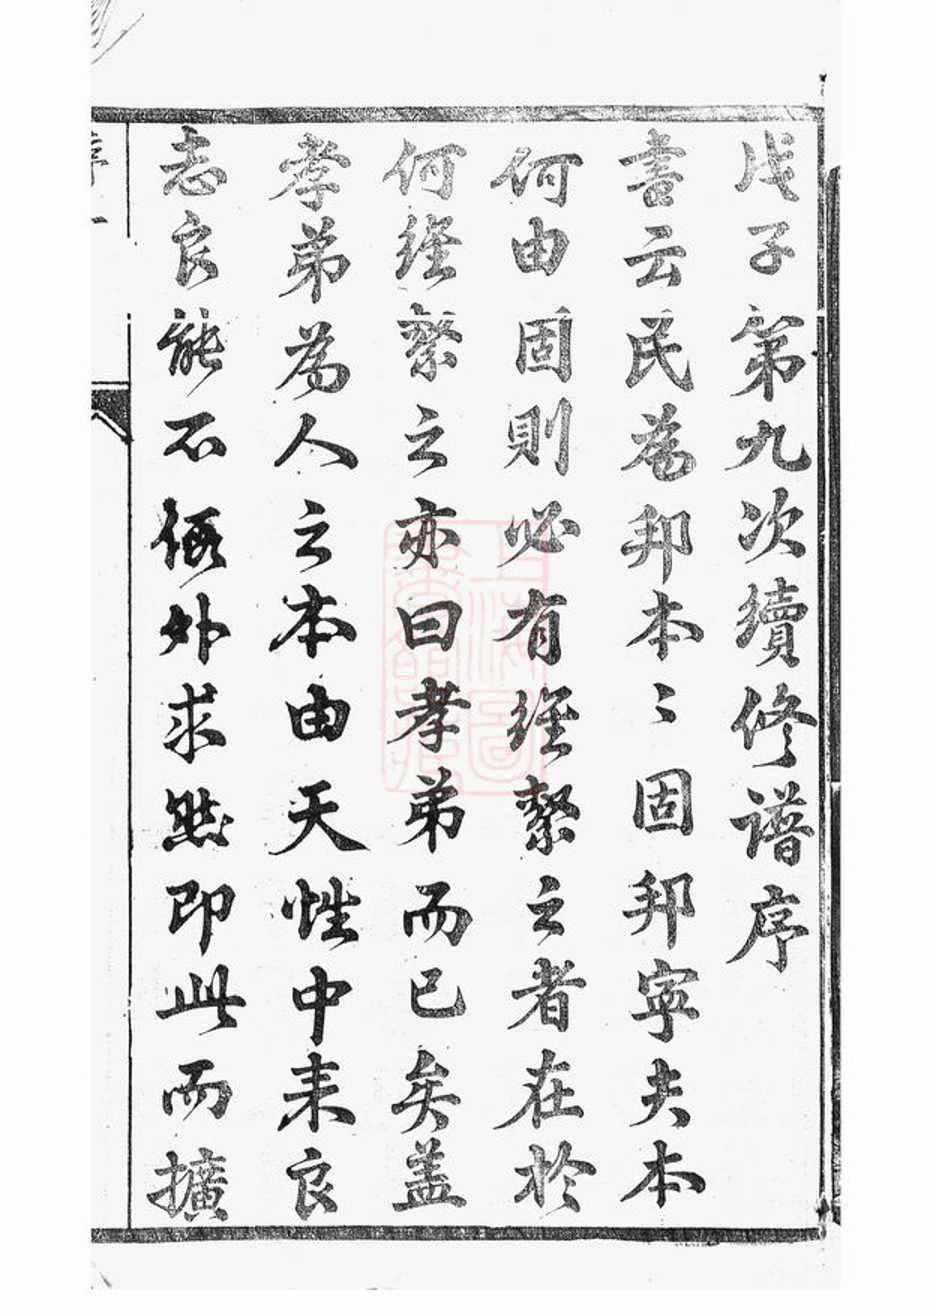 戊子第九次續修譜序
書云民為邦本〻固邦寧夫本
何由固則必有經繫之者在於
何經繫之亦曰孝弟而已矣蓋
孝弟為人之本由天性中来良
志良能不假外求然即此而擴
序一
上海圖書館藏